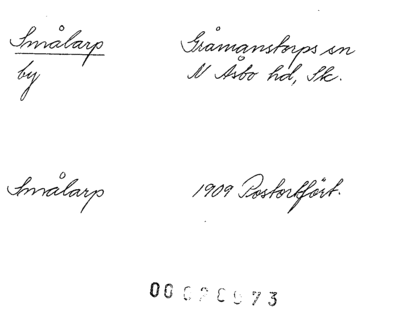 Smålarp Gråmanstorps sn
by N Åsbo hd, Sk.
Smålarp 1909 Postortfört.